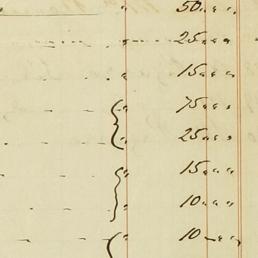 " 50 " "
" 25 " "
" 15 " "
" 75 " "
" 25 " "
" 15 " "
" 10 " "
" 10 " "